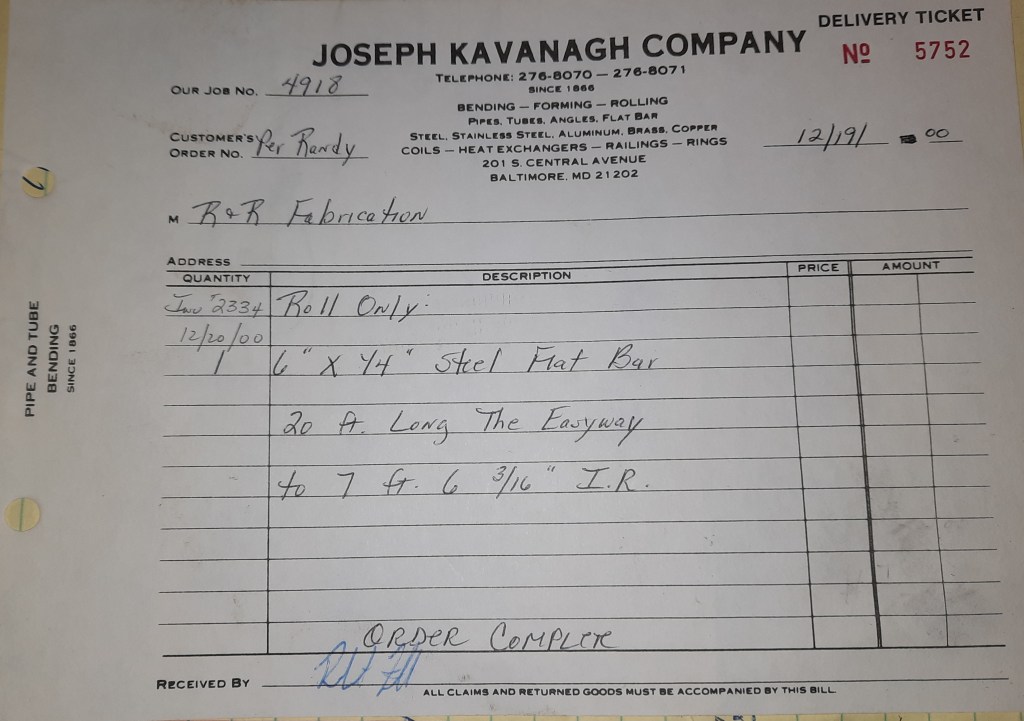 DELIVERY TICKET
JOSEPH KAVANAGH COMPANY
Nº 5752
TELEPHONE: 276-8070 — 276-8071
SINCE 1866
OUR JOB NO. 4918
BENDING — FORMING — ROLLING
PIPES, TUBES, ANGLES, FLAT BAR
STEEL, STAINLESS STEEL, ALUMINUM, BRASS, COPPER
CUSTOMER'S ORDER NO. Per Randy
COILS — HEAT EXCHANGERS — RAILINGS — RINGS
12/19/ 00
201 S. CENTRAL AVENUE
BALTIMORE, MD 21202
M R & R Fabrication
ADDRESS
QUANTITY DESCRIPTION PRICE AMOUNT
Inv # 2334 Roll Only:
12/20/00
1 6" X 1/4" Steel Flat Bar
20 ft. Long The Easyway
to 7 ft. 6 3/16" I.R.
ORDER COMPLETE
RECEIVED BY
ALL CLAIMS AND RETURNED GOODS MUST BE ACCOMPANIED BY THIS BILL
PIPE AND TUBE
BENDING
SINCE 1866